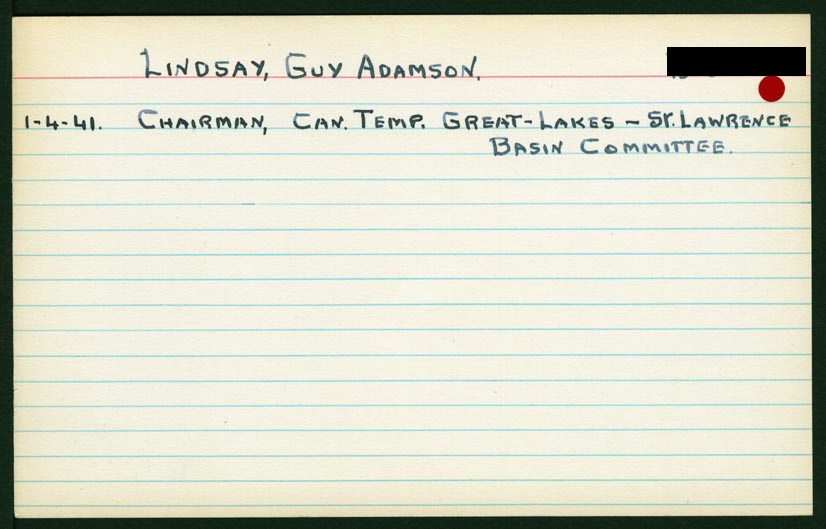 LINDSAY, GUY ADAMSON.
1-4-41. CHAIRMAN, CAN. TEMP. GREAT-LAKES - ST. LAWRENCE
BASIN COMMITTEE.